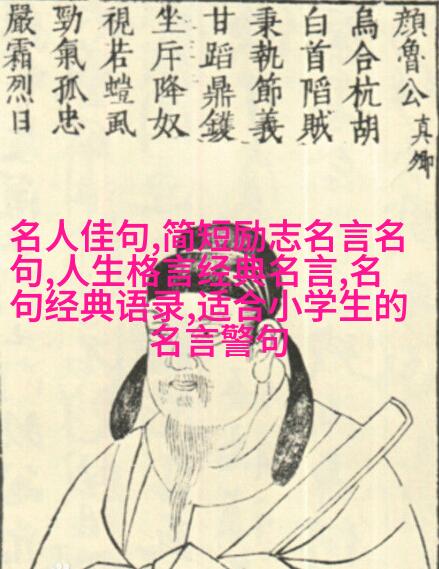 顔魯公真卿
烏合杭胡
白首陷賊
秉執節義
甘蹈鼎鑊
坐斥降奴
視若螘虱
勁氣孤忠
嚴霜烈日
名人佳句,简短励志名言名
句,人生格言经典名言,名
句经典语录,适合小学生的
名言警句